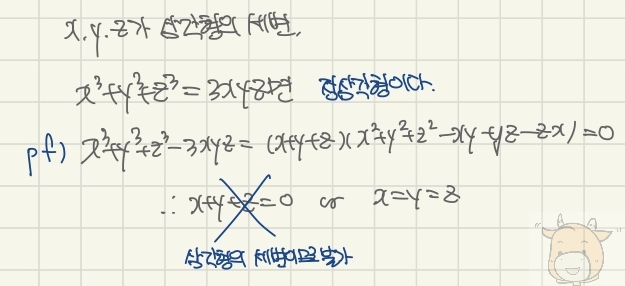 x, y, z가 삼각형의 세변,
x³+y³+z³=3xyz라면 정삼각형이다.
pf) x³+y³+z³-3xyz = (x+y+z)(x²+y²+z²-xy-yz-zx)=0
∴ x+y+z=0 or x=y=z
삼각형의 세변이므로 불가